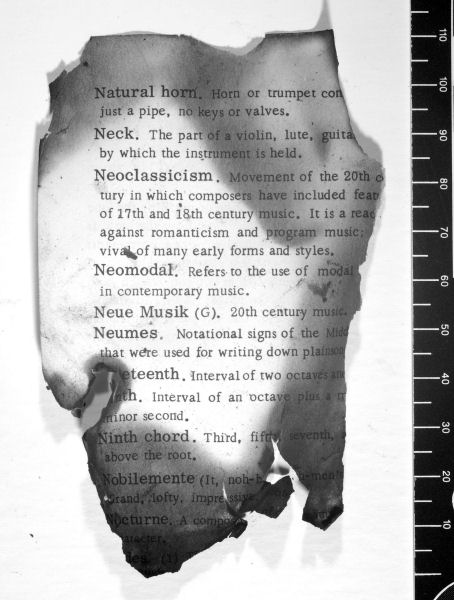 Natural horn. Horn or trumpet con
just a pipe, no keys or valves.
Neck. The part of a violin, lute, guita
by which the instrument is held.
Neoclassicism. Movement of the 20th c
tury in which composers have included feat
of 17th and 18th century music. It is a reac
against romanticism and program music;
vival of many early forms and styles.
Neomodal. Refers to the use of modal
in contemporary music.
Neue Musik (G). 20th century music.
Neumes. Notational signs of the Midd
that were used for writing down plainson
eteenth. Interval of two octaves and
nth. Interval of an octave plus a m
minor second.
Ninth chord. Third, fifth, seventh,
above the root.
Nobilemente (It, noh-b -mente
Grand, lofty, impressive
Nocturne. A compos
aracter.
des. (1)
110
100
90
80
70
60
50
40
30
20
10